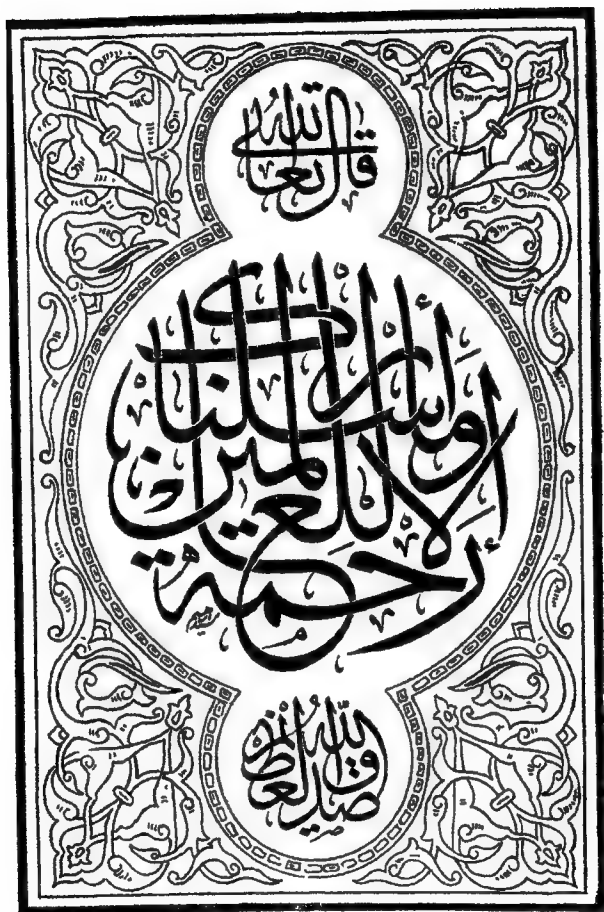 قال الله تعالى
وما أرسلناك إلا رحمة للعالمين
صدق الله العظيم